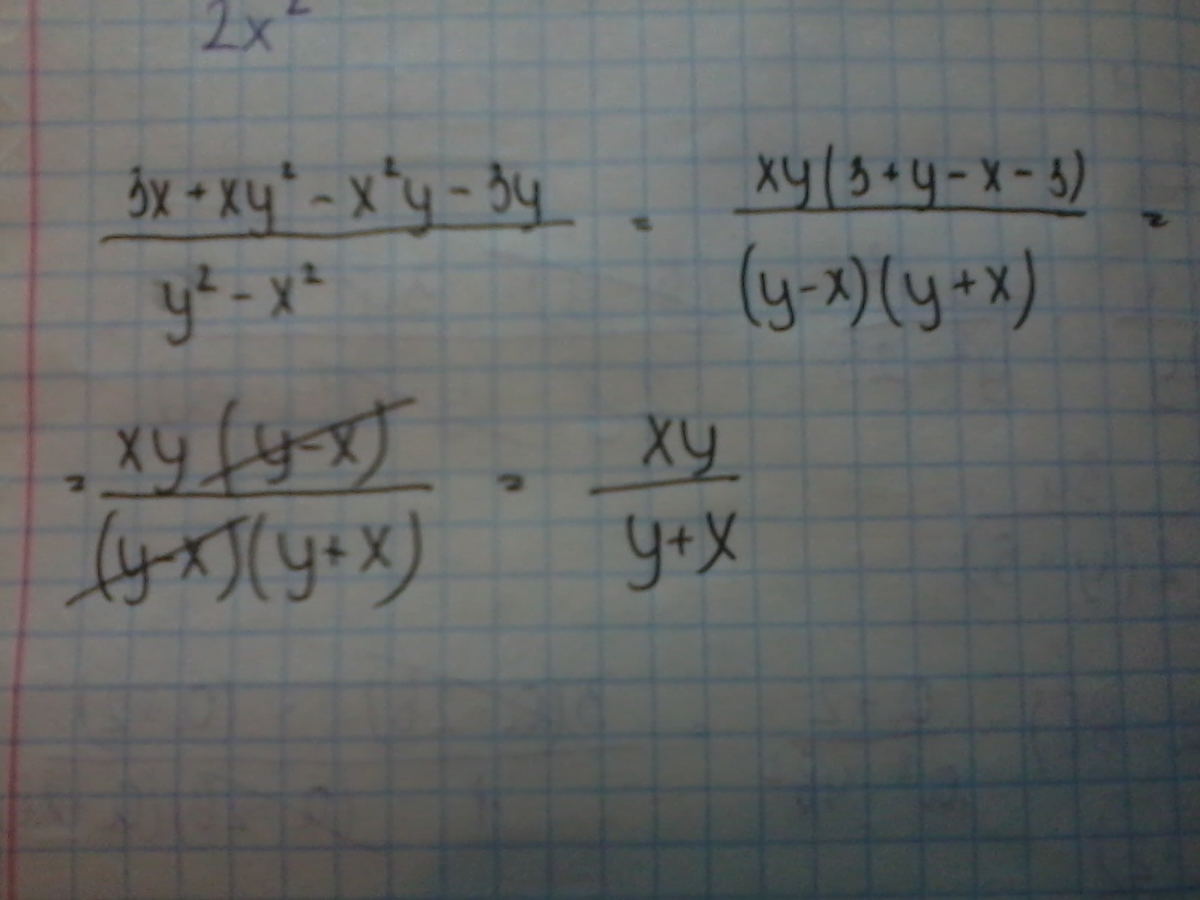 2x²
(3x + xy² - x²y - 3y)/(y² - x²) = xy(3 + y - x - 3)/((y-x)(y+x)) =
= xy(y-x)/((y-x)(y+x)) = xy/(y+x)